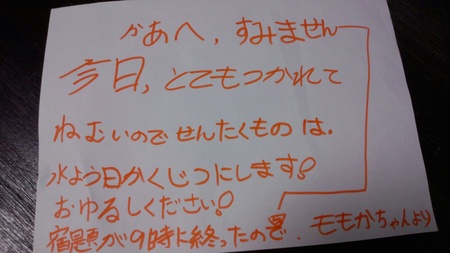 かあへ,すみません
今日,とてもつかれて
ねむいので せんたくものは,
水よう日かくじつにします!
おゆるしください!
宿題が9時に終ったので. ももかちゃんより